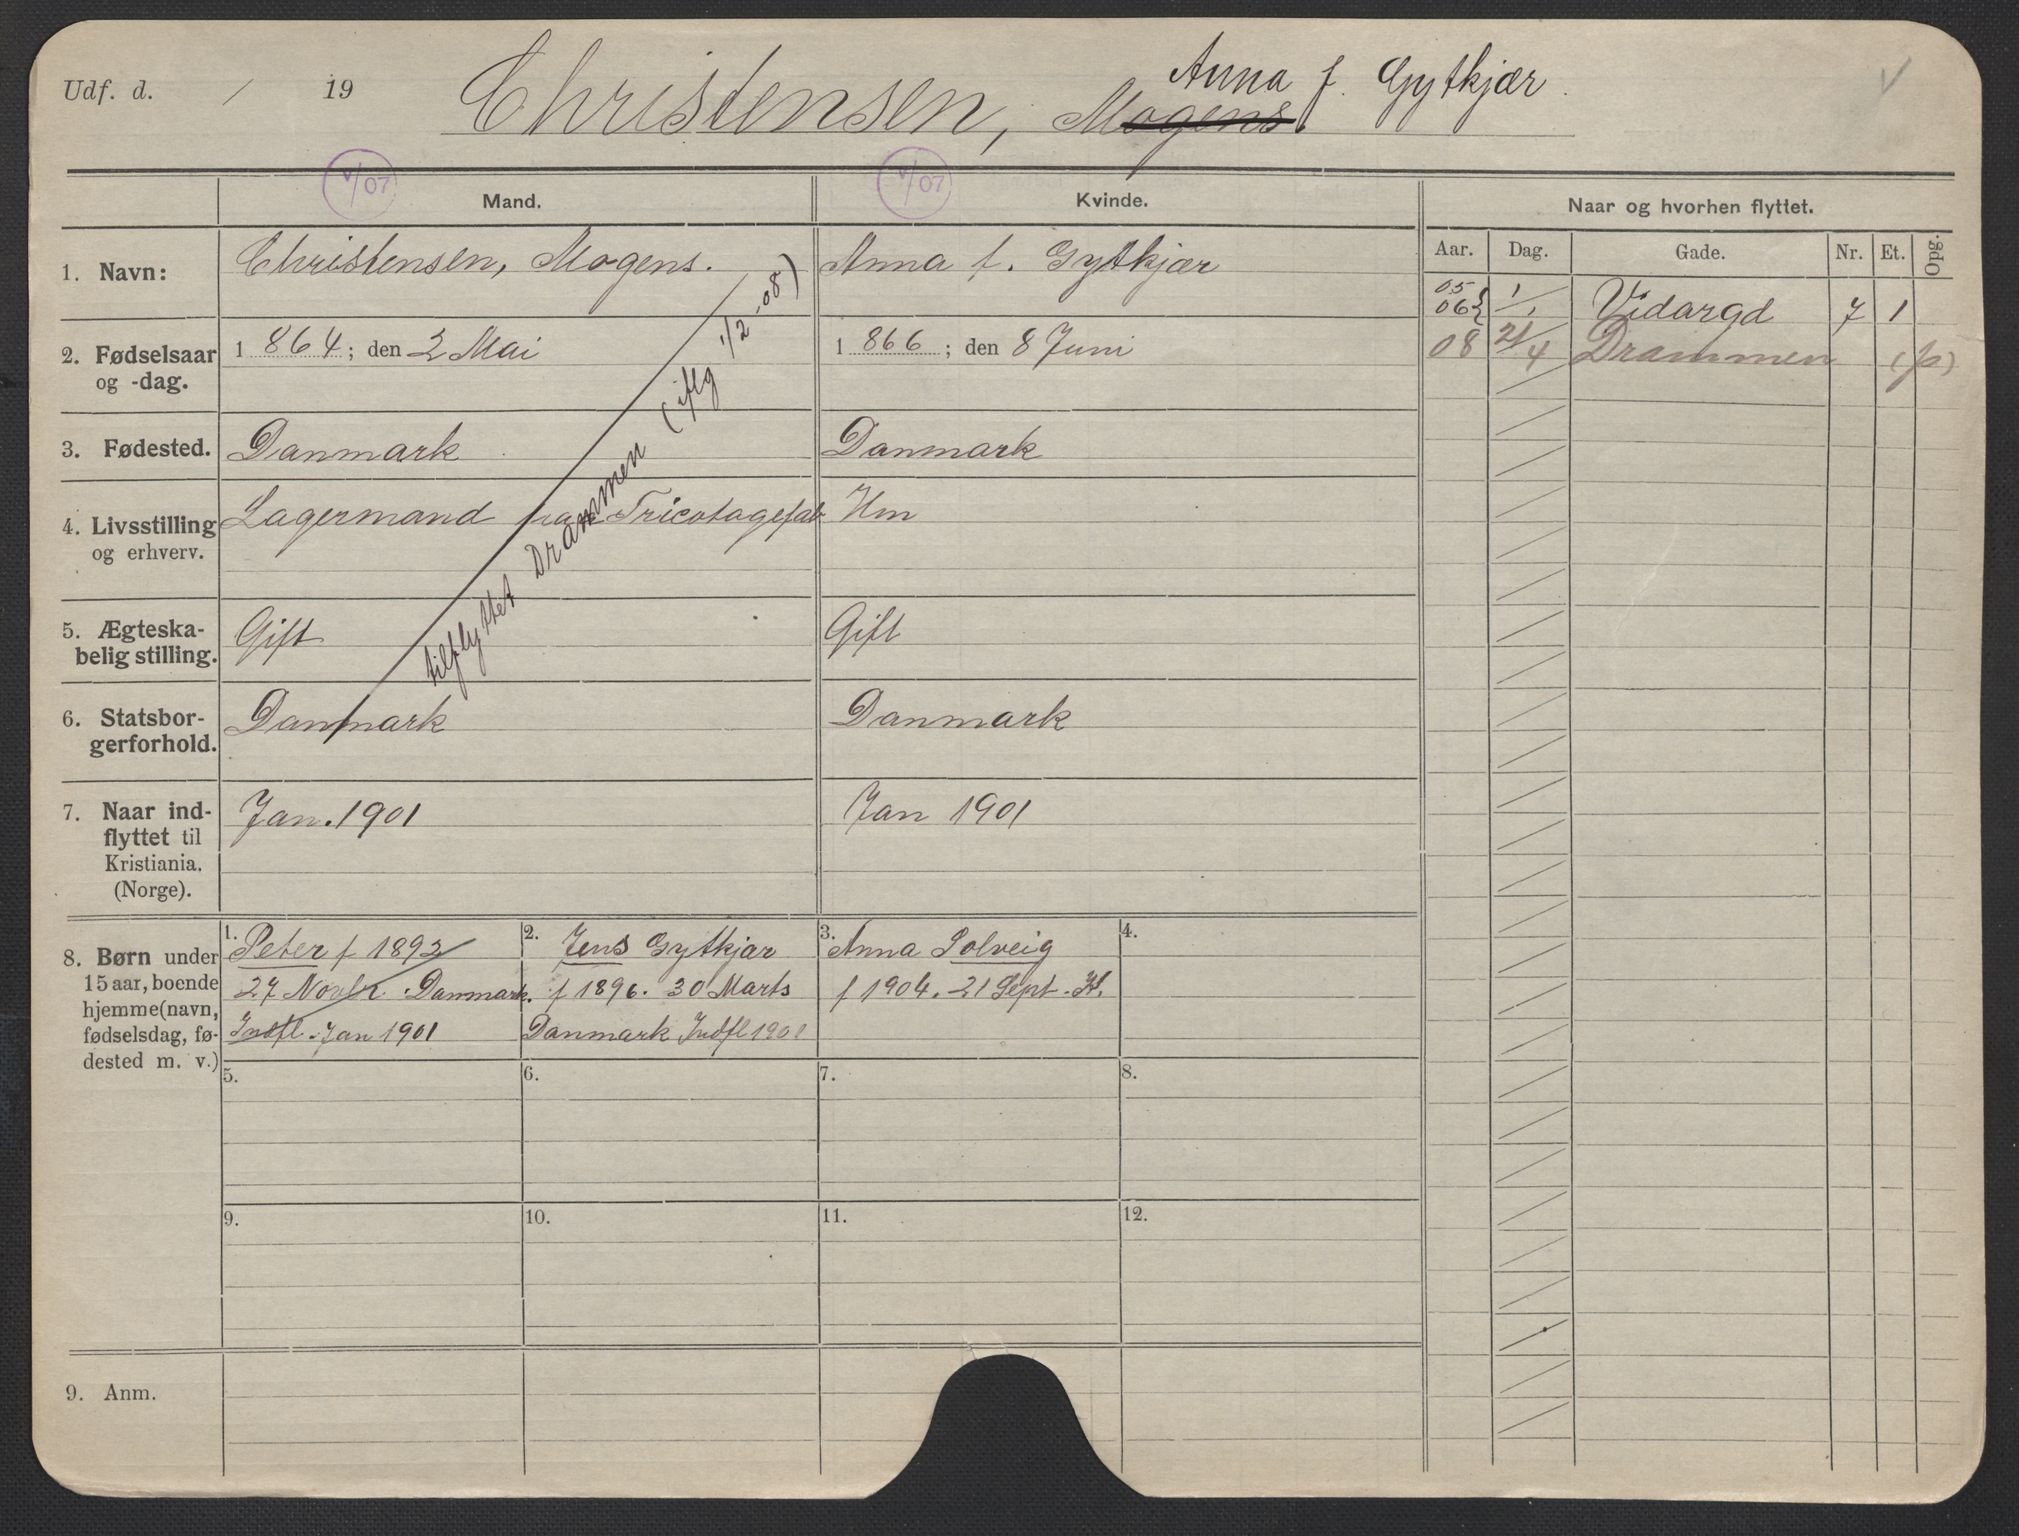 Udf. d. / 19
Christensen, Mogens. Anna f. Gytkjær
V/07
V/07
Mand.
Kvinde.
Naar og hvorhen flyttet.
Aar. Dag. Gade. Nr. Et. Opg.
1. Navn: Christensen, Mogens. Anna f. Gytkjær
05
06} 1/1 Vidargd 7 1
08 21/4 Drammen (p)
2. Fødselsaar
og -dag.
1864; den 2 Mai
1866; den 8 Juni
3. Fødested. Danmark Danmark
4. Livsstilling
og erhverv.
Lagermand paa Tricotagefab
Hm
tilflyttet Drammen (iflg 1/2-08)
5. Ægteska-
belig stilling.
Gift
Gift
6. Statsbor-
gerforhold.
Danmark
Danmark
7. Naar ind-
flyttet til
Kristiania.
(Norge).
Jan. 1901
Jan 1901
8. Børn under
15 aar, boende
hjemme (navn,
fødselsdag, fø-
dested m. v.)
1. Peter f 1892
27 Novbr. Danmark.
Indfl. Jan 1901
2. Jens Gytkjær
f 1896. 30 Marts
Danmark Indfl 1901
3. Anna Solveig
f 1904. 21 Sept.
4.
5.
6.
7.
8.
9.
10.
11.
12.
9. Anm.